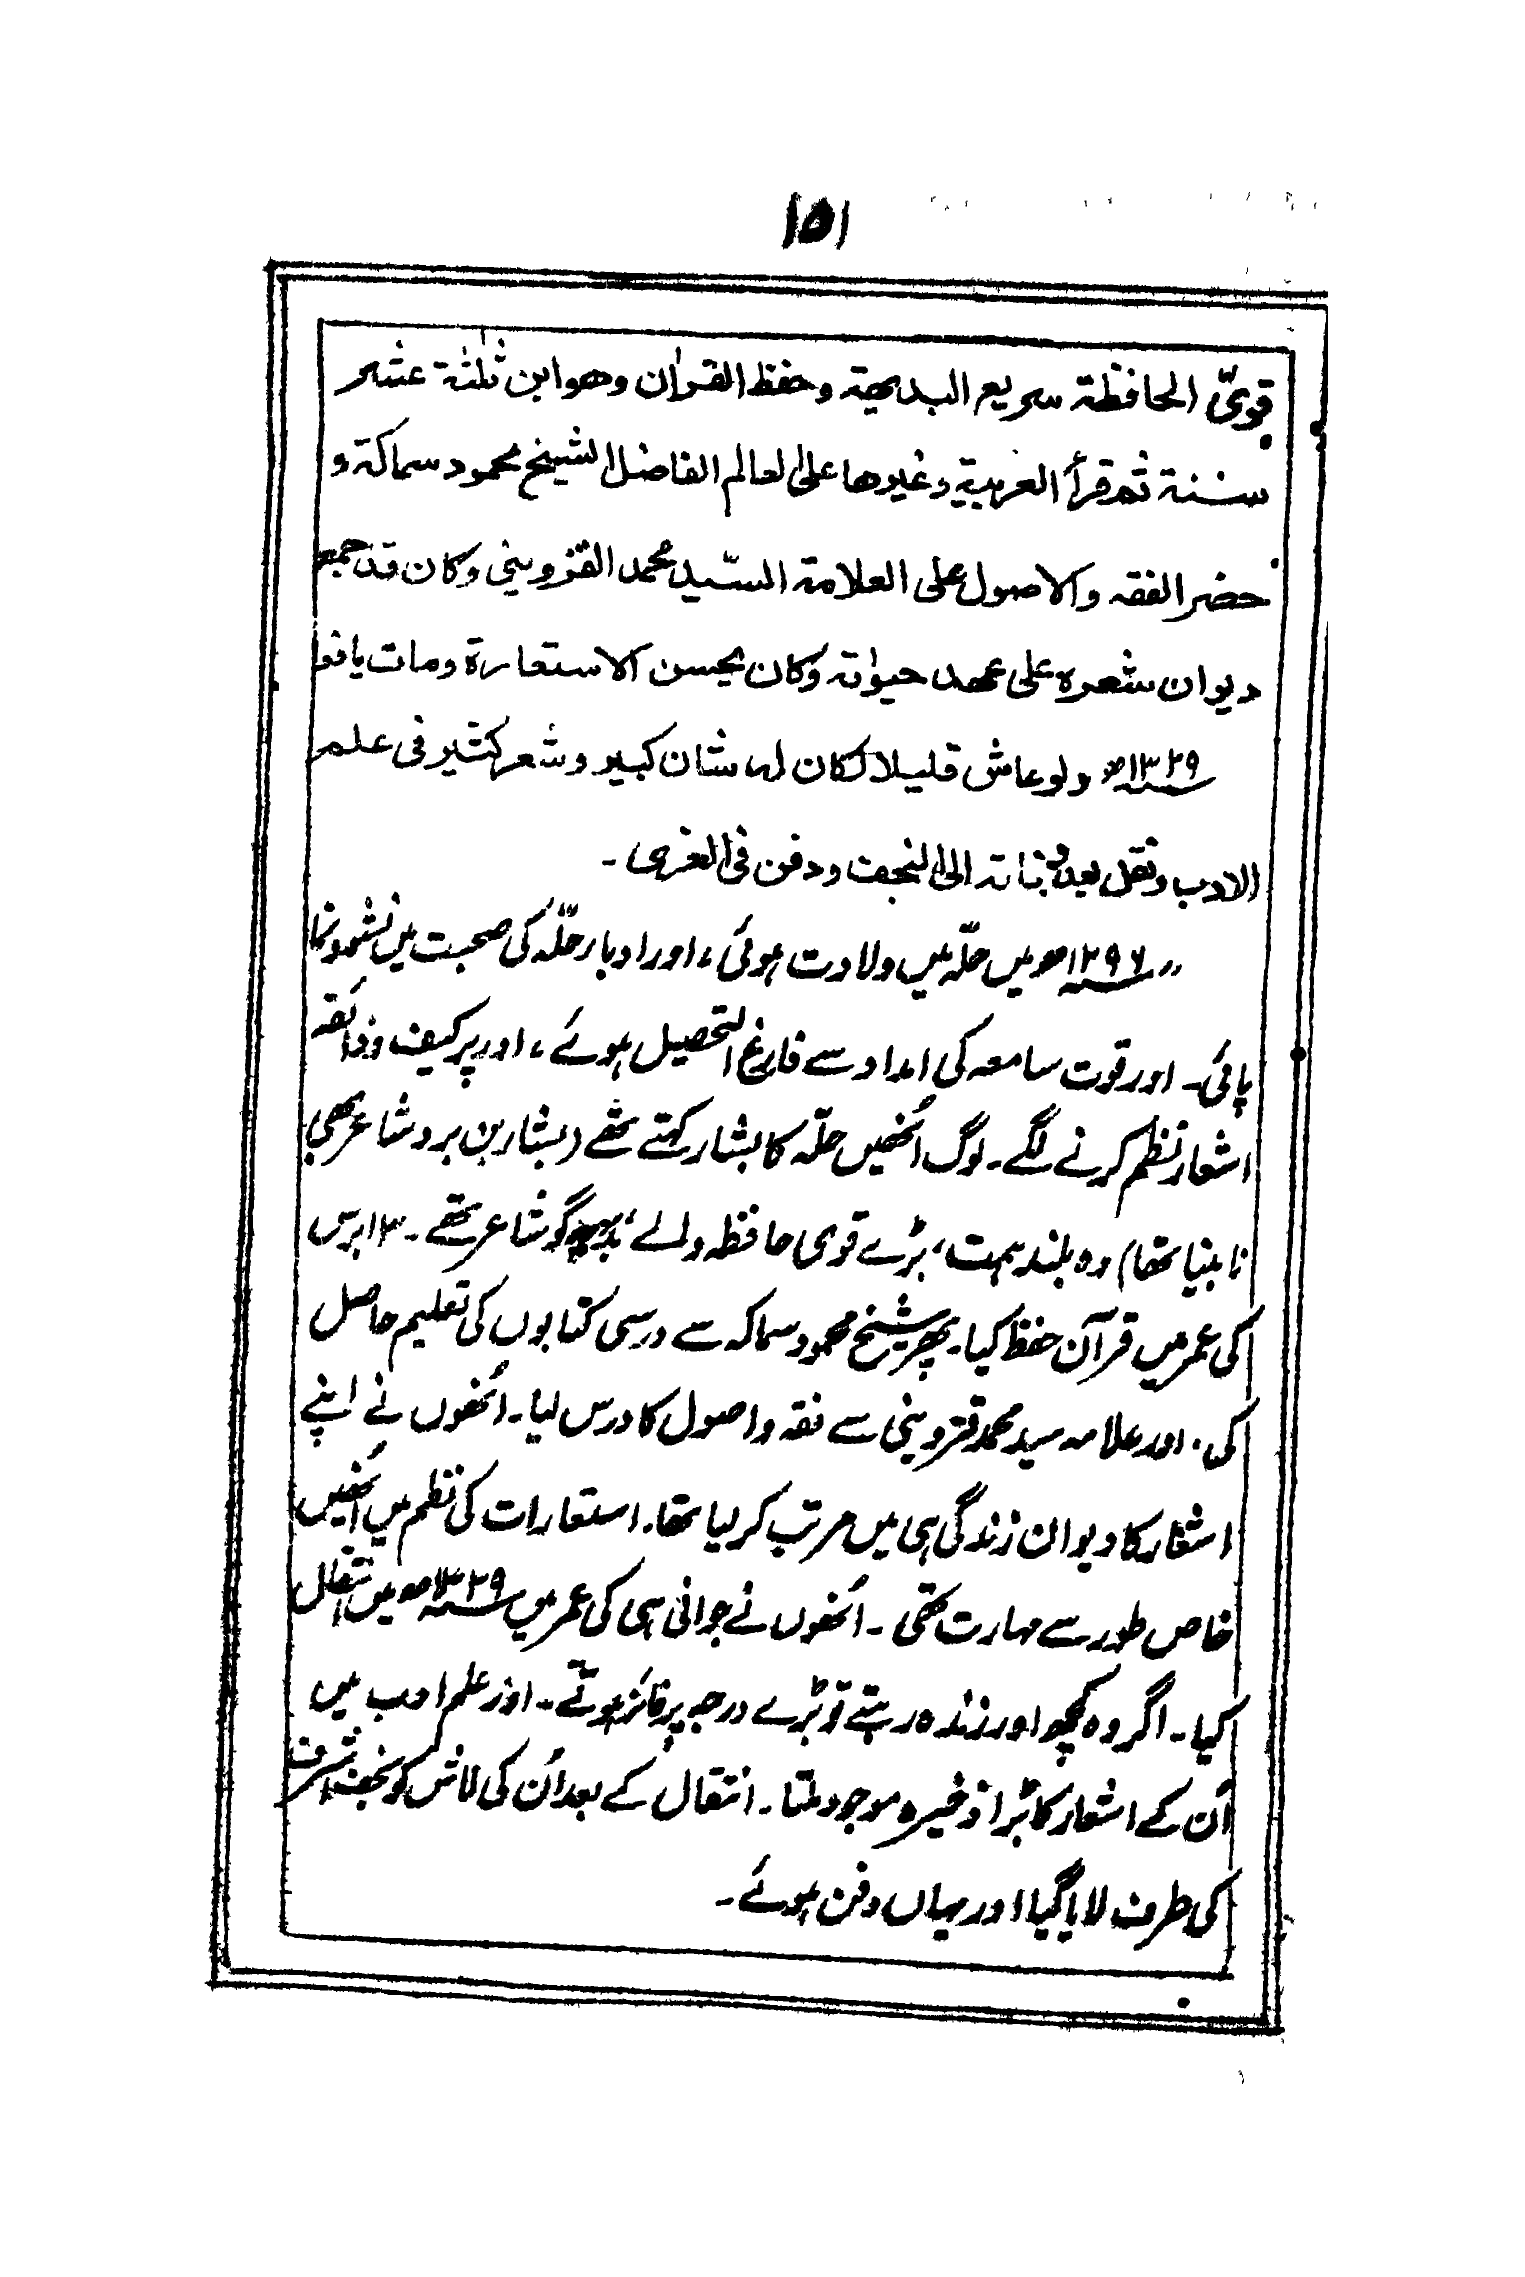 ۱۵۱
قویّ الحافظة سریع البدیهة وحفظ القراٰن وهو ابن ثلٰثة عشر
سنة ثم قرأ العربیة وغیرها علی العالم الفاضل الشیخ محمود سماکة و
حضر الفقه والاصول علی العلامة السیّد محمد القزوینی وکان قد جمع
دیوان شعره علی عهد حیوٰته وکان یحسن الاستعارة ومات یافعا
سنہ ۱۳۲۹ھ ولو عاش قلیلا لکان له شان کبیر وشعر کثیر فی علم
الادب ونقل بعد وفاته الی النجف ودفن فی الغری ۔
" سنہ ۱۲۹۶ھ میں حلّہ میں ولادت ہوئی، اور ادبار حلّہ کی صحبت میں نشوونما
پائی۔ اور قوت سامعہ کی امداد سے فارغ التحصیل ہوئے، اور پرکیف وذائقہ
اشعار نظم کرنے لگے۔ لوگ اُنھیں حلّہ کا بشار کہتے تھے (بشار بن برد شاعر بھی
نابینا تھا) وہ بلند ہمت، بڑے قوی حافظہ والے، بدیہہ گو شاعر تھے۔ ۱۳ برس
کی عمر میں قرآن حفظ کیا۔ پھر شیخ محمود سماکہ سے درسی کتابوں کی تعلیم حاصل
کی۔ اور علامہ سید محمد قزوینی سے فقہ واصول کا درس لیا۔ اُنھوں نے اپنے
اشعار کا دیوان زندگی ہی میں مرتب کرلیا تھا۔ استعارات کی نظم میں اُنھیں
خاص طور سے مہارت تھی ۔ اُنھوں نے جوانی ہی کی عمر میں سنہ ۱۳۲۹ھ میں انتقال
کیا۔ اگر وہ کچھ اور زندہ رہتے تو بڑے درجہ پر فائز ہوتے۔ اور علم ادب میں
اُن کے اشعار کا بڑا ذخیرہ موجود ملتا۔ انتقال کے بعد اُن کی لاش کو نجف اشرف
کی طرف لایا گیا اور یہاں دفن ہوئے ۔